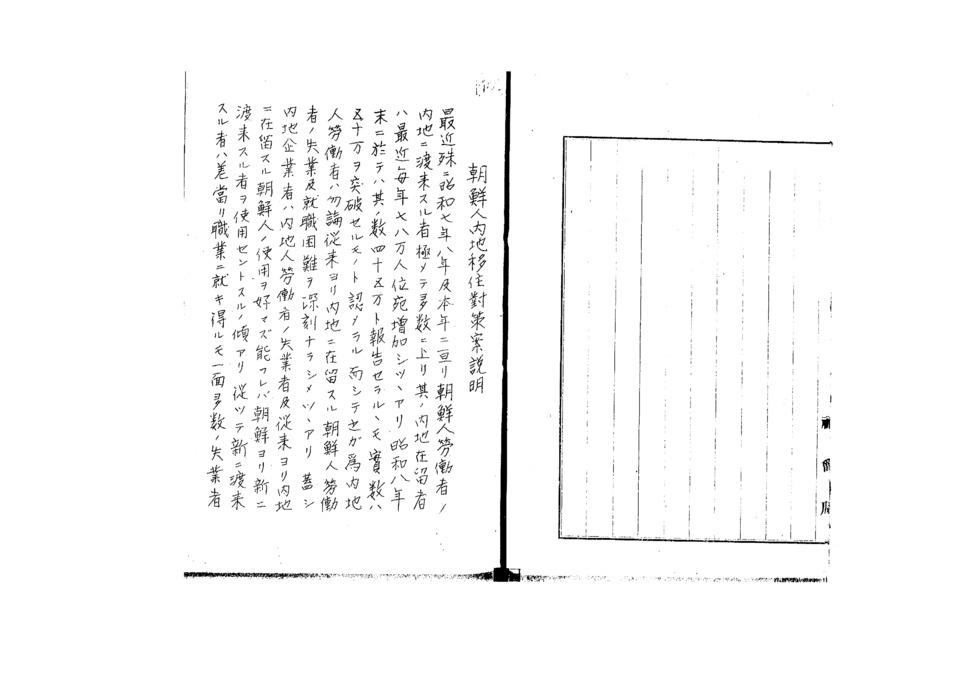 朝鮮人内地移住對策案説明
最近殊ニ昭和七年八年及本年ニ亘リ朝鮮人勞働者ノ
内地ニ渡来スル者極メテ多数ニ上リ其ノ内地在留者
ハ最近毎年七八万人位宛増加シツヽアリ昭和八年
末ニ於テハ其ノ数四十五万ト報告セラルヽモ實数ハ
五十万ヲ突破セルモノト認メラル而シテ之ガ爲内地
人勞働者ハ勿論従来ヨリ内地ニ在留スル朝鮮人勞働
者ノ失業及就職困難ヲ深刻ナラシメツヽアリ蓋シ
内地企業者ハ内地人勞働者ノ失業者及従来ヨリ内地
ニ在留スル朝鮮人ノ使用ヲ好マズ能フレバ朝鮮ヨリ新ニ
渡来スル者ヲ使用セントスルノ傾アリ従ツテ新ニ渡来
スル者ハ差當リ職業ニ就キ得ルモ一面多数ノ失業者